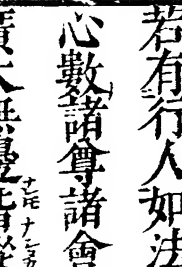 若有行人如法
心數諸尊諸會
廣大無邊皆從